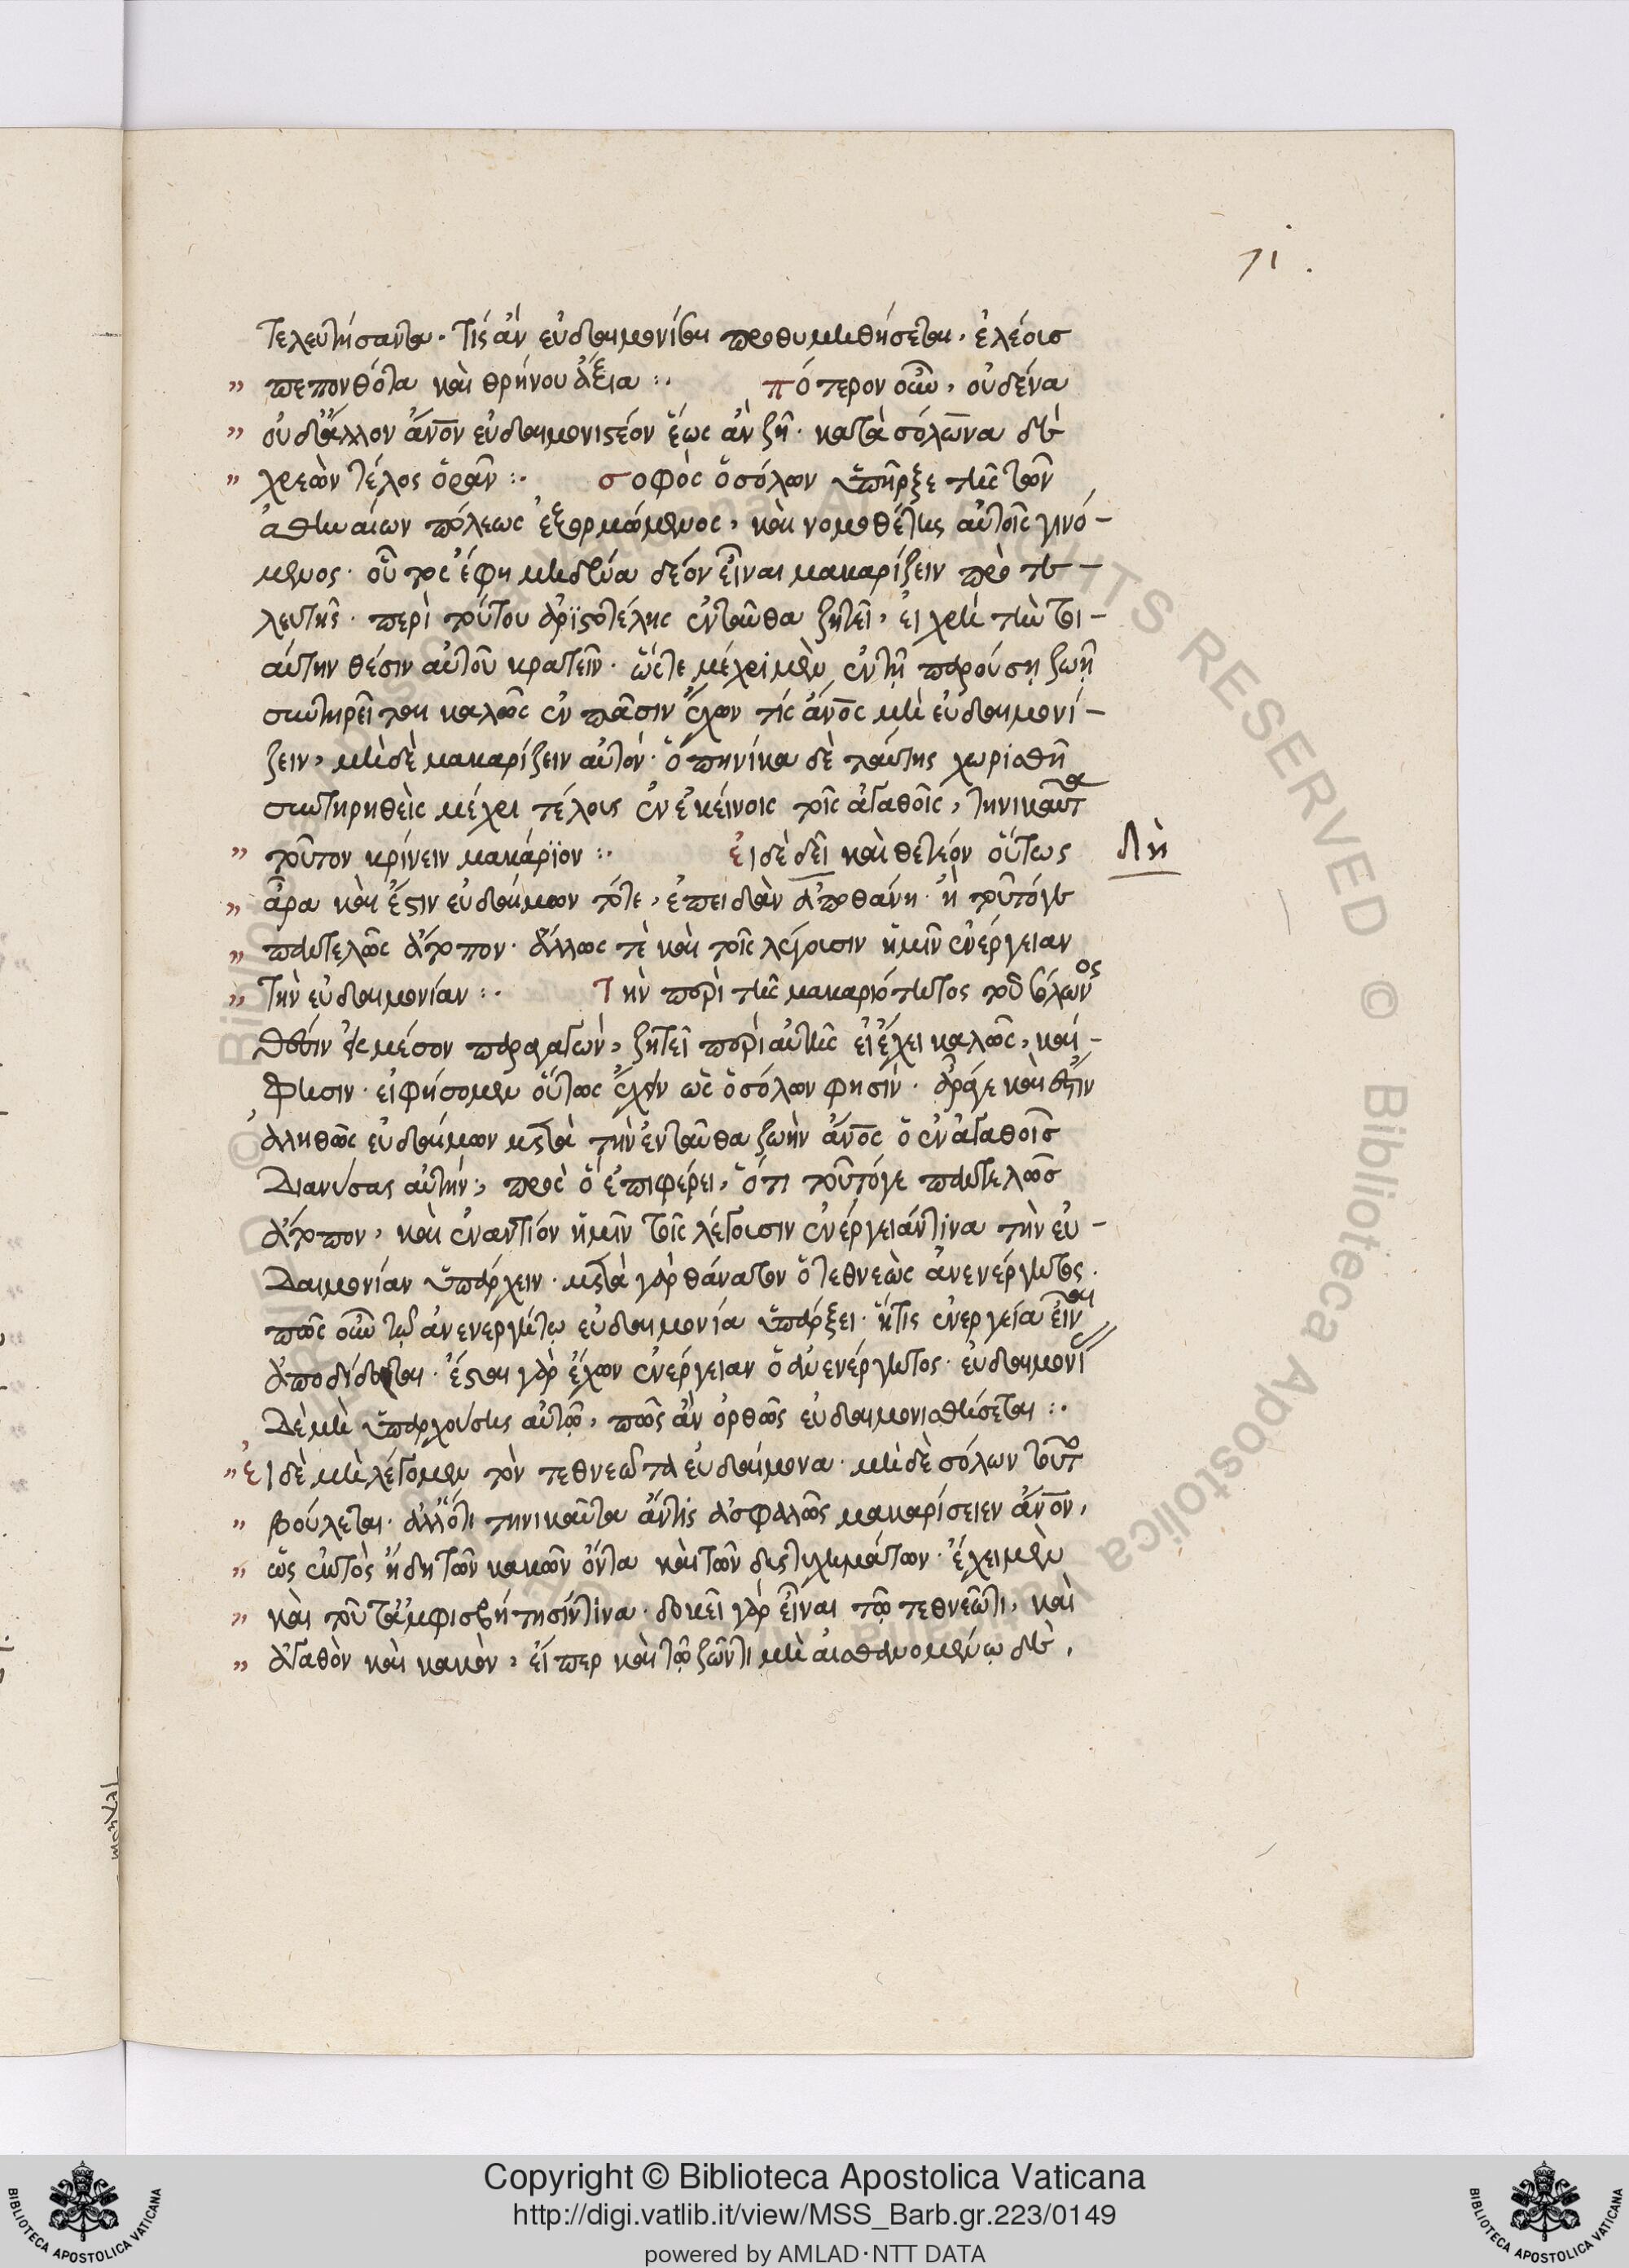 71.
τελευτήσαντα. τίς ἂν εὐδαιμονίσαι προθυμηθήσεται, ἐλέους
" πεπονθότα καὶ θρήνου ἄξια :. πότερον οὖν, οὐδένα
" οὐδ' ἄλλον ἄνον εὐδαιμονιστέον ἕως ἂν ζῆ· κατὰ σόλωνα δὲ
" χρεὼν τέλος ὁρᾶν :. σοφὸς ὁ σόλων ὑπῆρξε τῆς τῶν
ἀθηναίων πόλεως ἐξορμώμενος, καὶ νομοθέτης αὐτοῖς γινό-
μενος· οὗτος ἔφη μηδένα δέον εἶναι μακαρίζειν πρὸ τε-
λευτῆς· περὶ τούτου ἀριστοτέλης ἐνταῦθα ζητεῖ, εἰ χρὴ τὴν τοι-
αύτην θέσιν αὐτοῦ κρατεῖν· ὥστε μέχρι μὲν ἐν τῆ παρούση ζωῆ
συντηρεῖται καλῶς ἐν πᾶσιν ἔχων τίς ἄνος μὴ εὐδαιμονί-
ζειν, μὴ δὲ μακαρίζειν αὐτόν· ὁπηνίκα δὲ ταύτης χωρισθῆ
συντηρηθεὶς μέχρι τέλους ἐν ἐκείνοις τοῖς ἀγαθοῖς, τηνικαῦτα
" τοῦτον κρίνειν μακάριον :. εἰ δὲ δεῖ καὶ θετέον οὕτως
δὴ
" ἆρα καὶ ἔστιν εὐδαίμων τότε, ἐπειδὰν ἀποθάνη· ἢ τοῦτό γε
" παντελῶς ἄτοπον· ἄλλως τὲ καὶ τοῖς λέγουσιν ἡμῖν ἐνέργειαν
" τὴν εὐδαιμονίαν :. τὴν περὶ τῆς μακαριότητος τοῦ σόλωνος
θέσιν εἰς μέσον παραγαγών, ζητεῖ περὶ αὐτῆς εἰ ἔχει καλῶς, καί-
φησιν· εἰ φήσομεν οὕτως ἔχειν ὡς ὁ σόλων φησίν· ἆράγε καὶ ἔστιν
ἀληθῶς εὐδαίμων μετὰ τὴν ἐνταῦθα ζωὴν ἄνος ὁ ἐν ἀγαθοῖς
διανύσας αὐτήν, πρὸς ὃ ἐπιφέρει, ὅτι τοῦτό γε παντελῶς
ἄτοπον, καὶ ἐναντίον ἡμῖν τοῖς λέγουσιν ἐνέργειάν τινα τὴν εὐ-
δαιμονίαν ὑπάρχειν· μετὰ γὰρ θάνατον ὁ τεθνεὼς ἀνενέργητος·
πῶς οὖν τῷ ἀνενεργήτῳ εὐδαιμονία ὑπάρξει· ἥτις ἐνεργεία εἶναι
ἀποδίδοται· ἔσται γὰρ ἔχων ἐνέργειαν ὁ ἀνενέργητος· εὐδαιμονί
δὲ μὴ ὑπαρχούσης αὐτῷ, πῶς ἂν ὀρθῶς εὐδαιμονισθήσεται :.
" εἰ δὲ μὴ λέγομεν τὸν τεθνεῶτα εὐδαίμονα· μὴ δὲ σόλων τοῦτο
" βούλεται· ἀλλ' ὅτι τηνικαῦτα ἄν τις ἀσφαλῶς μακαρίσειεν ἄνον,
" ὡς ἐκτὸς ἤδη τῶν κακῶν ὄντα καὶ τῶν δυστυχημάτων· ἔχει μὲν
" καὶ τοῦτ' ἀμφισβήτησίν τινα· δοκεῖ γὰρ εἶναι τῷ τεθνεῶτι, καὶ
" ἀγαθὸν καὶ κακὸν, εἴπερ καὶ τῷ ζῶντι μὴ αἰσθανομένῳ δὲ,
Copyright © Biblioteca Apostolica Vaticana
http://digi.vatlib.it/view/MSS_Barb.gr.223/0149
powered by AMLAD·NTT DATA